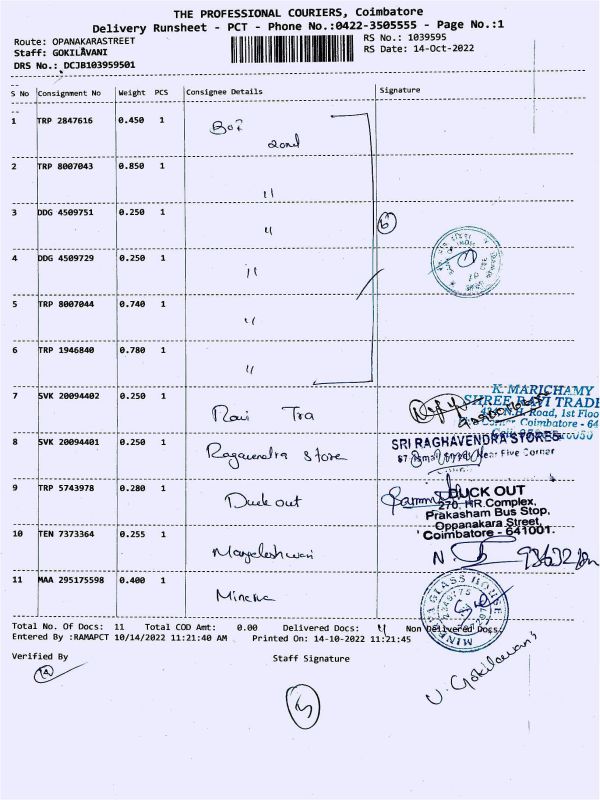 THE PROFESSIONAL COURIERS, Coimbatore
Delivery Runsheet - PCT - Phone No.:0422-3505555 - Page No.:1
Route: OPANAKARASTREET
Staff: GOKILAVANI
DRS No.: DCJB103959501
RS No.: 1039595
RS Date: 14-Oct-2022
S No Consignment No Weight PCS Consignee Details Signature
1 TRP 2847616 0.450 1
2 TRP 8007043 0.850 1 "
3 DDG 4509751 0.250 1 "
4 DDG 4509729 0.250 1 "
5 TRP 8007044 0.740 1 "
6 TRP 1946840 0.780 1 "
6
7 SVK 20094402 0.250 1 Ravi Tra
K. MARICHAMY
SHREE RAVI TRADE
N.H. Road, 1st Floo
Corner Coimbatore - 64
8 SVK 20094401 0.250 1 Ragavendra Store
SRI RAGHAVENDRA STORES
Near Five Corner
9 TRP 5743978 0.280 1 Duck out
DUCK OUT
270, HR.Complex,
Prakasham Bus Stop,
Oppanakara Street,
Coimbatore - 641001.
10 TEN 7373364 0.255 1
11 MAA 295175598 0.400 1 Minerva
MINERVA GLASS HOUSE
Total No. Of Docs: 11 Total COD Amt: 0.00 Delivered Docs: 11 Non Delivered Docs:
Entered By :RAMAPCT 10/14/2022 11:21:40 AM Printed On: 14-10-2022 11:21:45
Verified By Staff Signature
V. Gokilavani